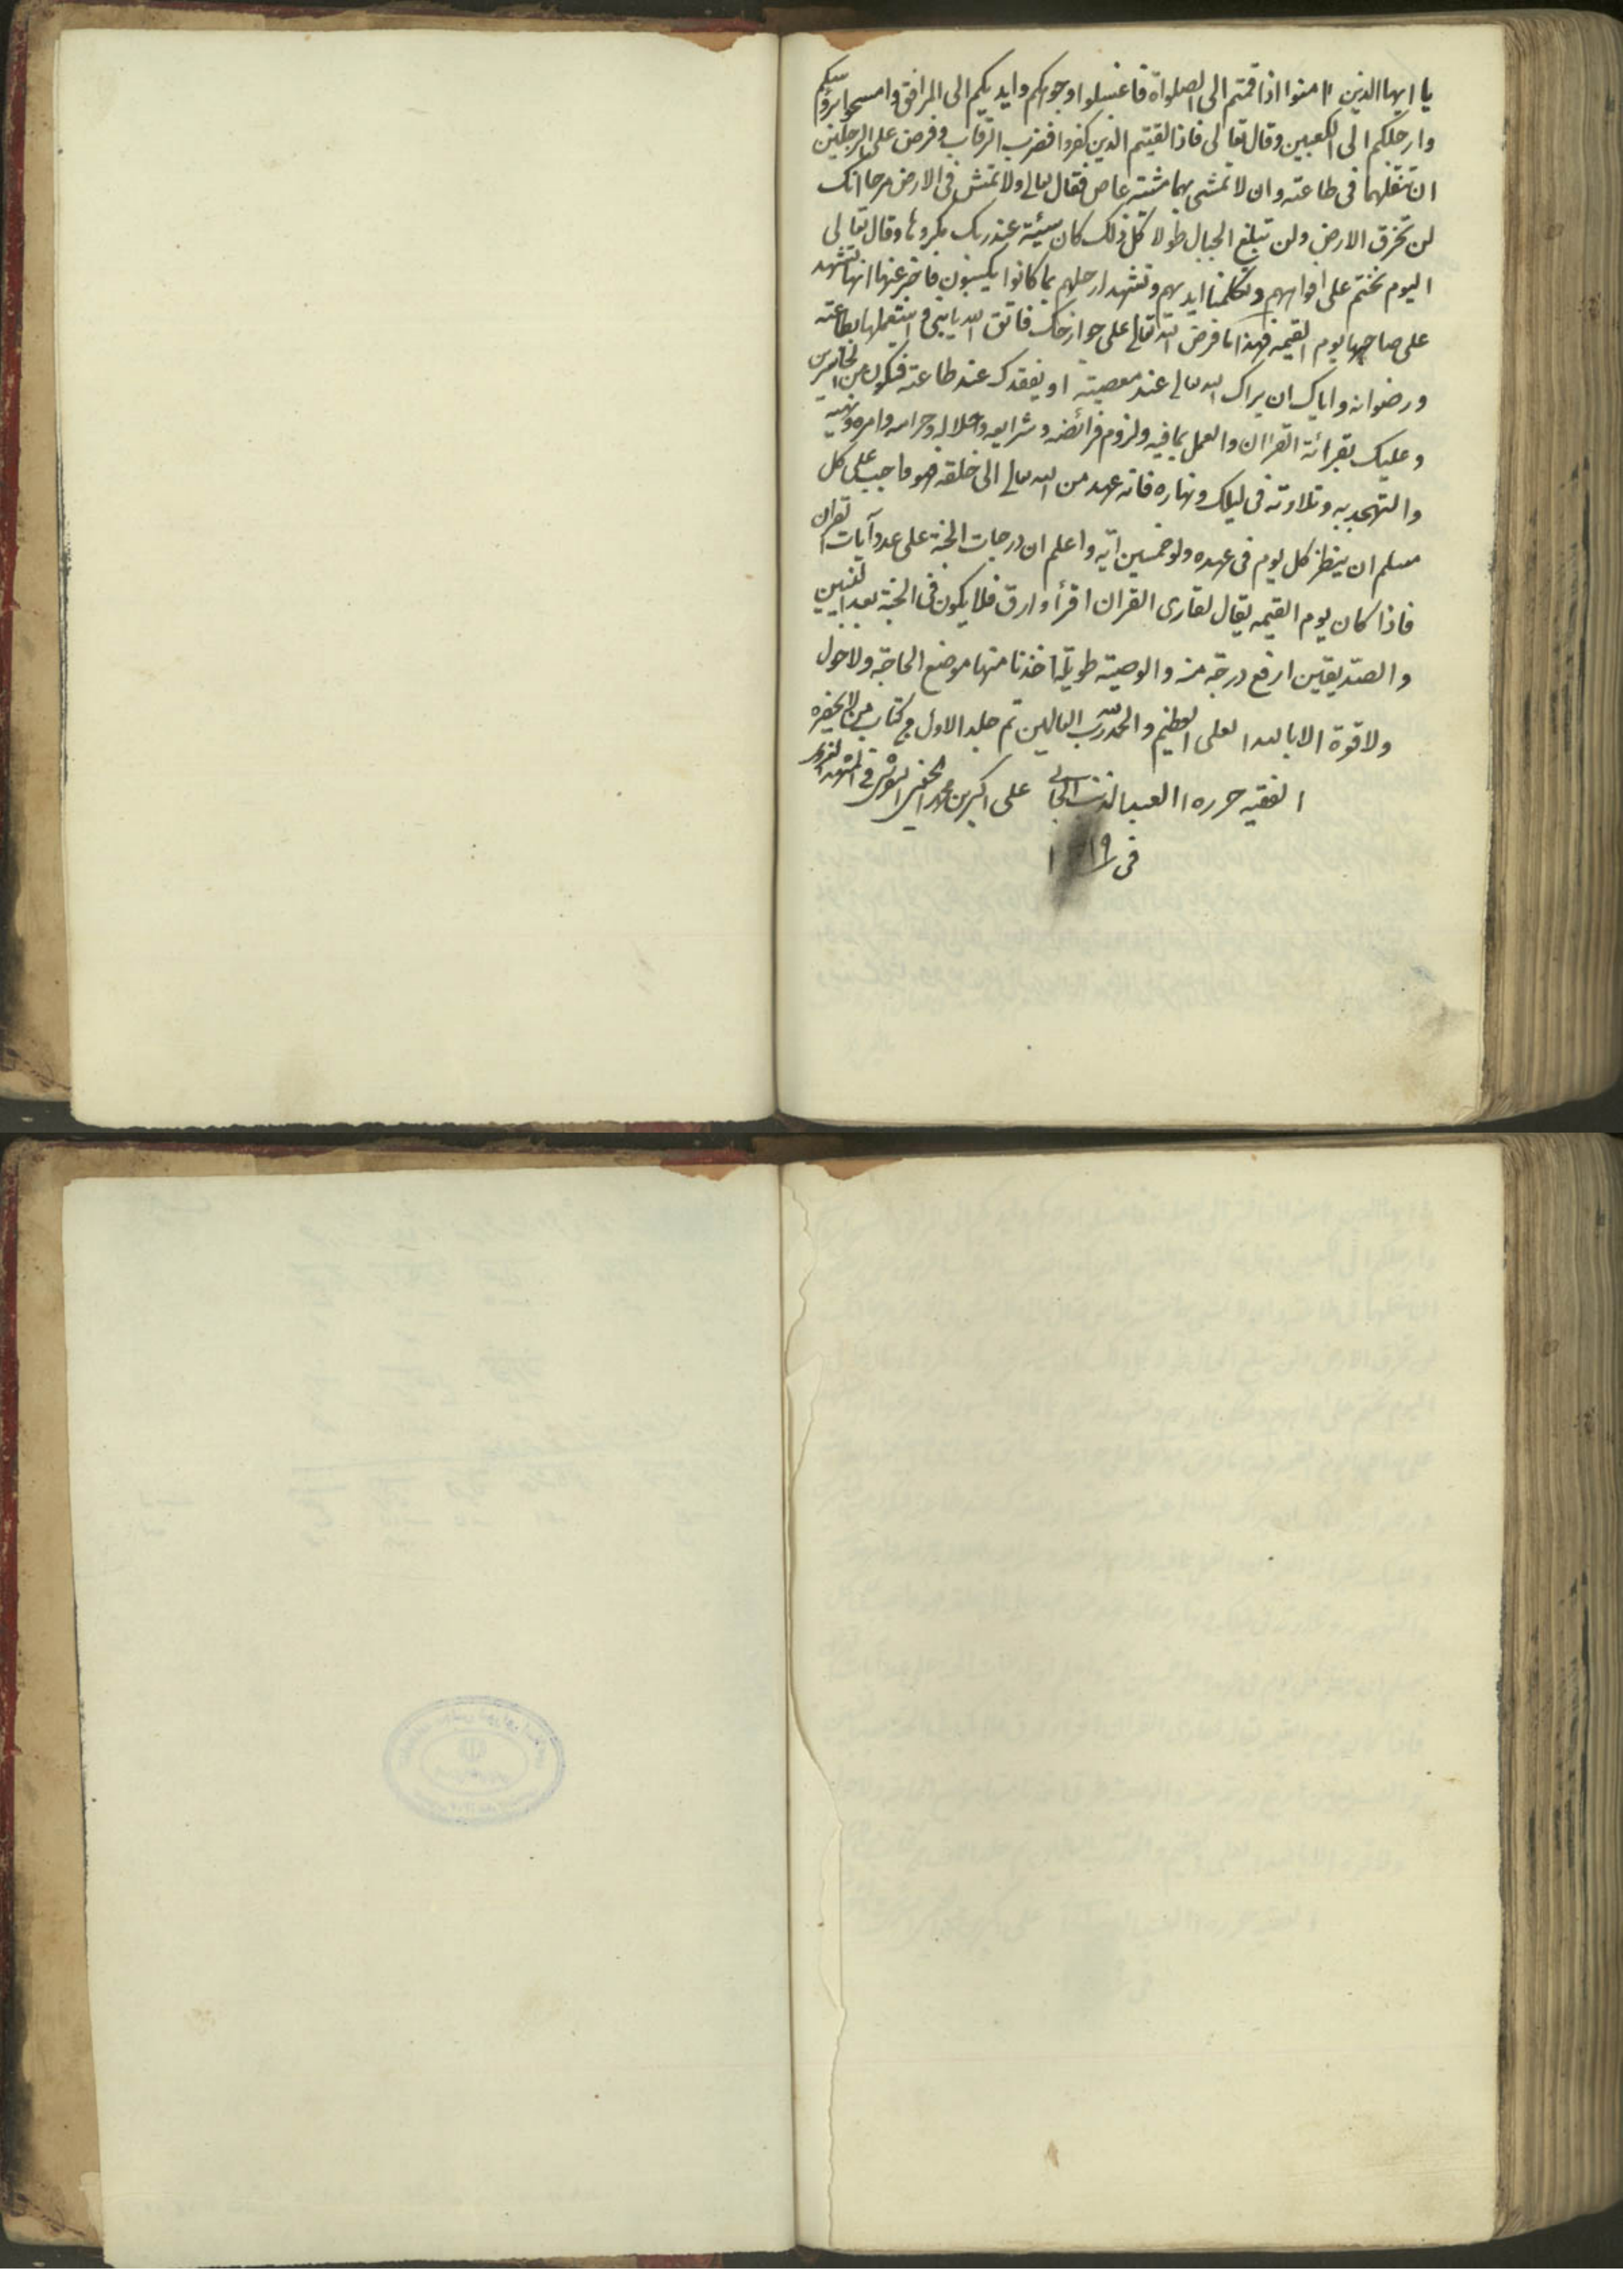 يا ايها الذين اامنوا اذا قمتم الى الصلواة فاغسلوا وجوهكم وايديكم الى المرافق وامسحوا برؤسكم
وارجلكم الى الكعبين وقال تعالى فاذا لقيتم الذين كفروا فضرب الرقاب وفرض على الرجلين
ان تنقلهما فى طاعته وان لا تمشى بهما مشية عاص فقال تعالى ولا تمش فى الارض مرحا انك
لن تخرق الارض ولن تبلغ الجبال طولا كل ذلك كان سيئة عند ربك مكروها وقال تعالى
اليوم نختم على افواههم وتكلمنا ايديهم وتشهد ارجلهم بما كانوا يكسبون فاخبر عنها انها تشهد
على صاحبها يوم القيمة فهذا ما فرض الله تعالى على جوارحك فاتق الله يا بنى واستعملها بطاعته
ورضوانه واياك ان يراك الله تعالى عند معصيته او يفقدك عند طاعته فتكون من الخاسرين
وعليك بقرائة القراان والعمل بما فيه ولزوم فرائضه وشرايعه وحلاله وحرامه وامره ونهيه
والتهجد به وتلاوته فى ليلك ونهاره فانه عهد من الله تعالى الى خلقه فهو واجب على كل
مسلم ان ينظر كل يوم فى عهده ولو خمسين اية واعلم ان درجات الجنة على عدد آيات القران
فاذا كان يوم القيمه يقال لقارى القران اقرأ وارق فلا يكون فى الجنة بعد النبيين
والصديقين ارفع درجة منه والوصية طويلة اخذنا منها موضع الحاجة ولا حول
ولا قوة الا بالله العلى العظيم والحمد لله رب العالمين تم جلد الاول من كتاب من لا يحضره
الفقيه حرره العبد المذنب الجانى على اكبر بن محمد
فى